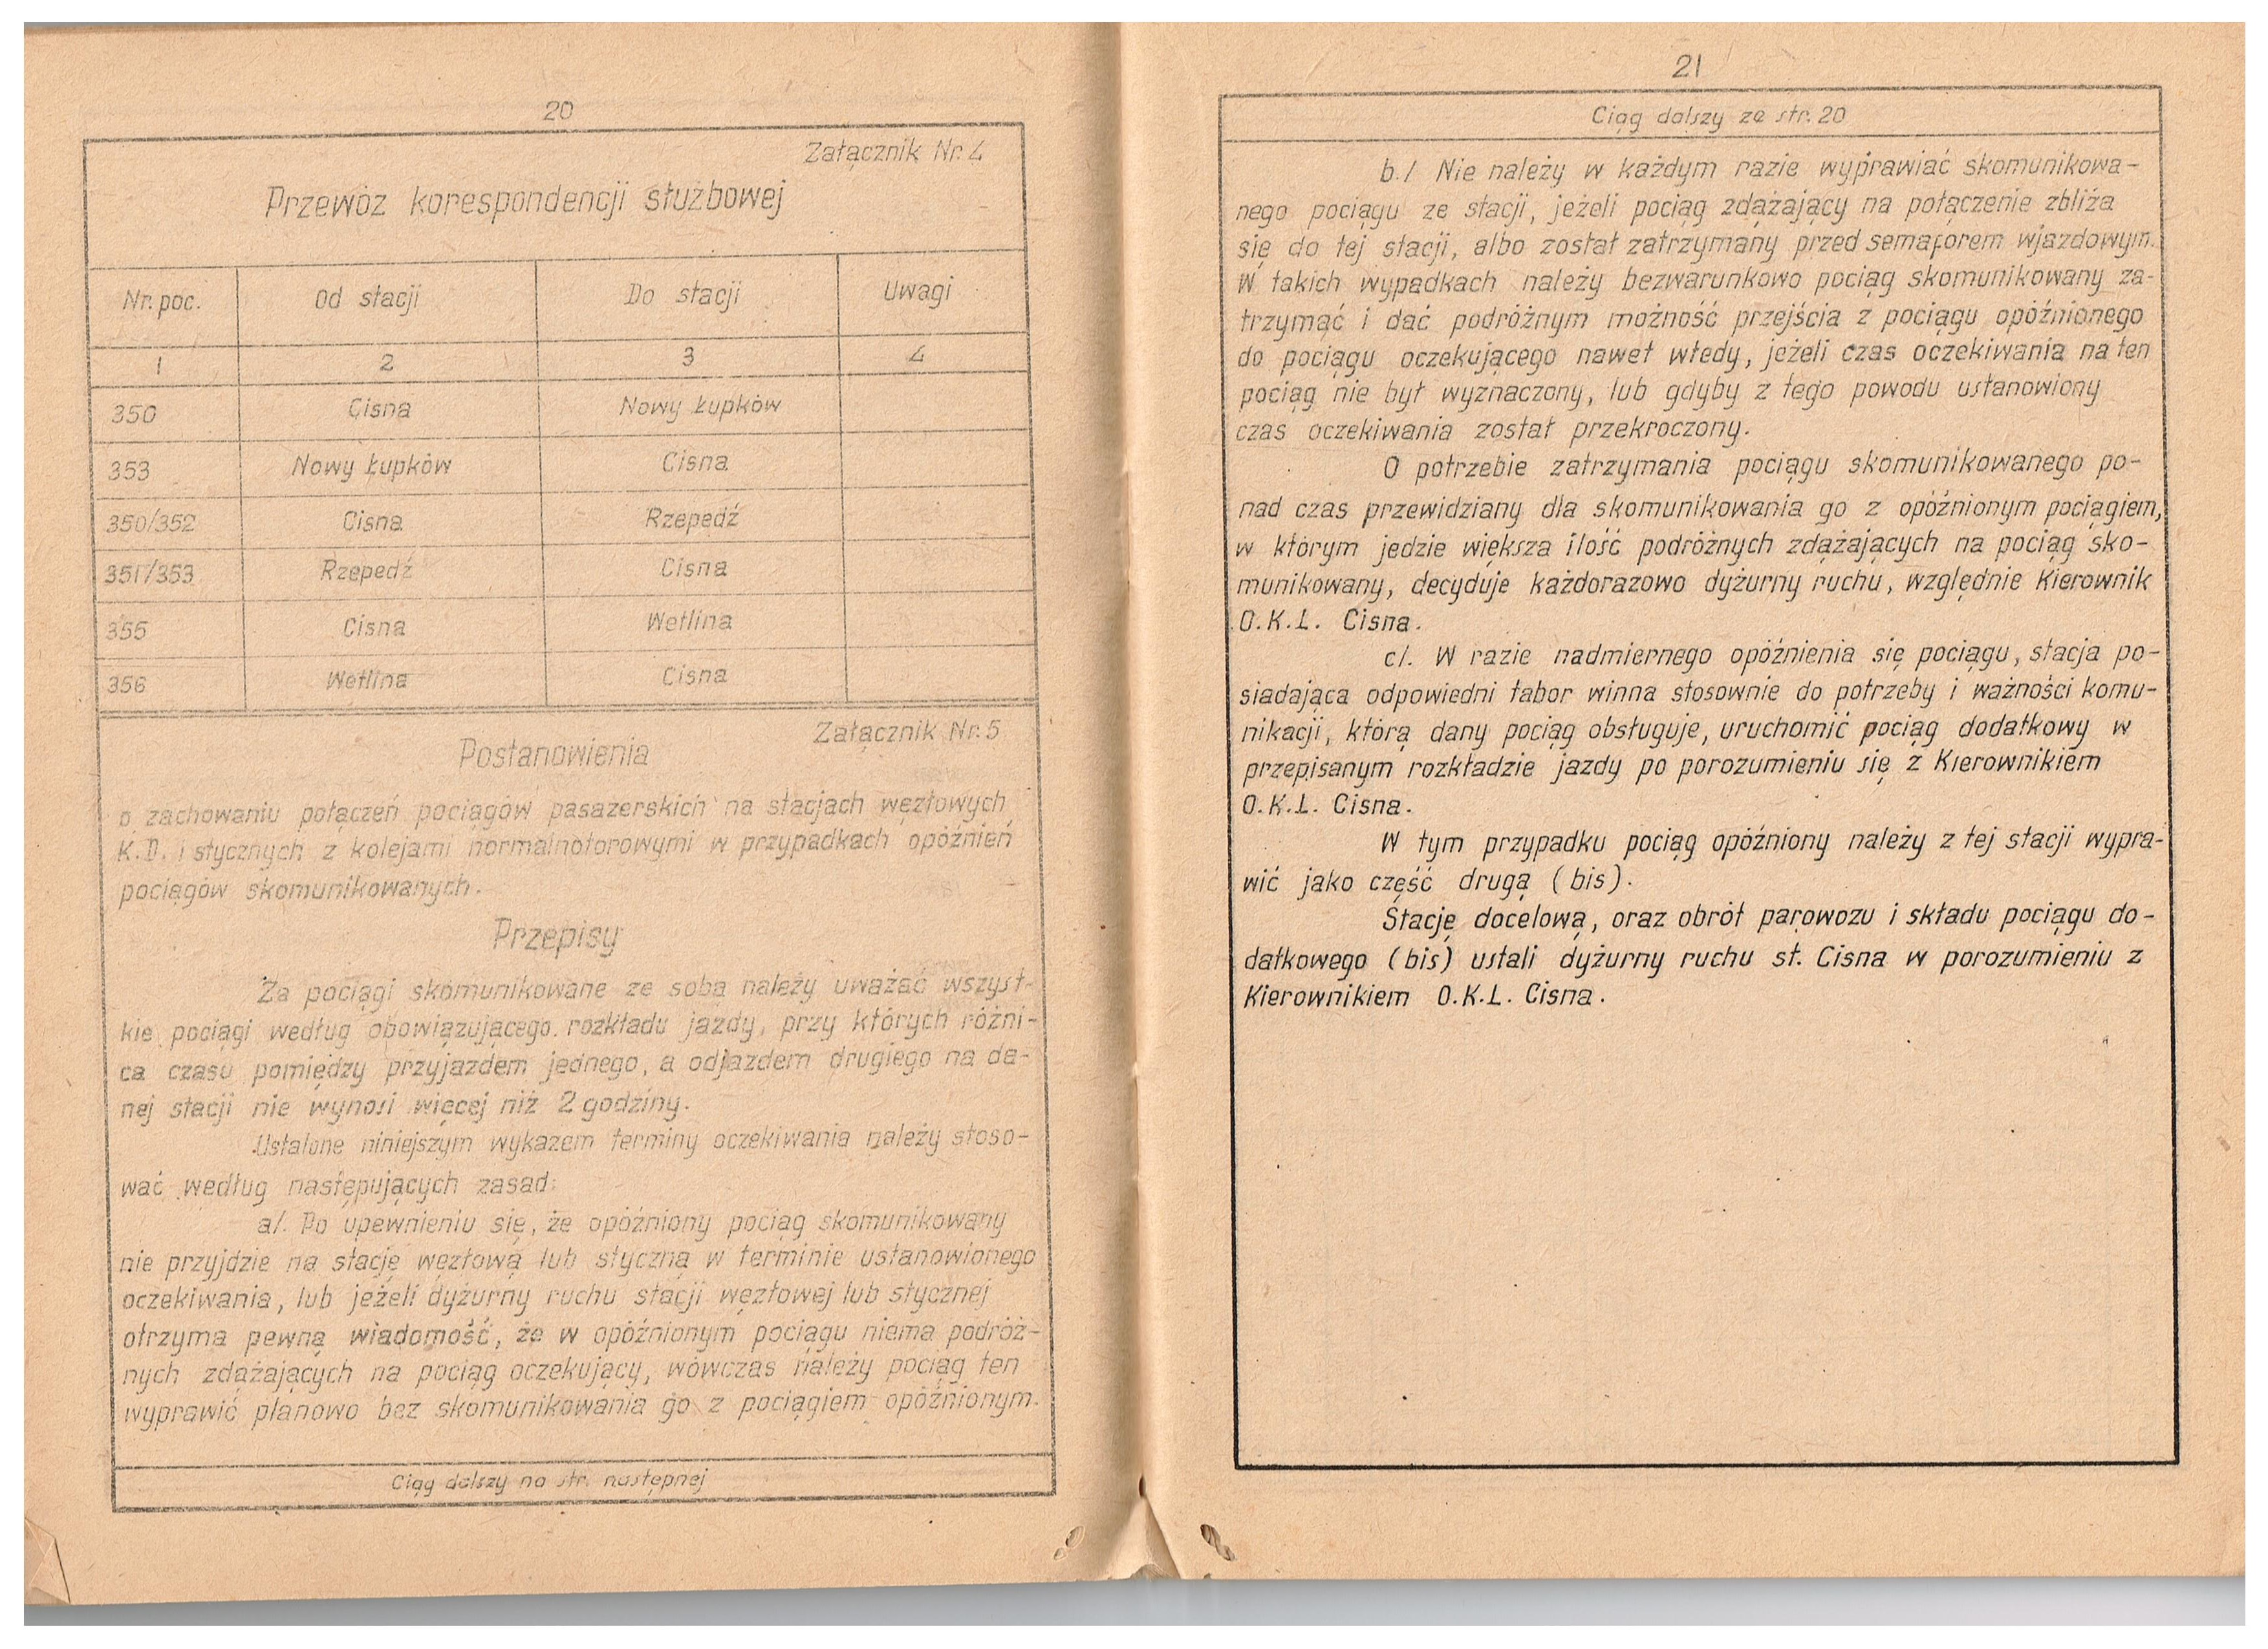 20
Załącznik Nr. 4
Przewóz korespondencji służbowej
Nr. poc. Od stacji Do stacji Uwagi
1 2 3 4
350 Cisna Nowy Łupków
353 Nowy Łupków Cisna
350/352 Cisna Rzepedź
351/353 Rzepedź Cisna
355 Cisna Wetlina
356 Wetlina Cisna
Załącznik Nr. 5
Postanowienia
o zachowaniu połączeń pociągów pasażerskich na stacjach węzłowych
K.D. i stycznych z kolejami normalnotorowymi w przypadkach opóźnień
pociągów skomunikowanych.
Przepisy
Za pociągi skomunikowane ze sobą należy uważać wszyst-
kie pociągi według obowiązującego rozkładu jazdy, przy których różni-
ca czasu pomiędzy przyjazdem jednego, a odjazdem drugiego na da-
nej stacji nie wynosi więcej niż 2 godziny.
Ustalone niniejszym wykazem terminy oczekiwania należy stoso-
wać według następujących zasad:
a/. Po upewnieniu się, że opóźniony pociąg skomunikowany
nie przyjdzie na stację węzłową lub styczną w terminie ustanowionego
oczekiwania, lub jeżeli dyżurny ruchu stacji węzłowej lub stycznej
otrzyma pewną wiadomość, że w opóźnionym pociągu niema podróż-
nych zdążających na pociąg oczekujący, wówczas należy pociąg ten
wyprawić planowo bez skomunikowania go z pociągiem opóźnionym.
Ciąg dalszy na str. następnej
21
Ciąg dalszy ze str. 20
b./ Nie należy w każdym razie wyprawiać skomunikowa-
nego pociągu ze stacji, jeżeli pociąg zdążający na połączenie zbliża
się do tej stacji, albo został zatrzymany przed semaforem wjazdowym.
W takich wypadkach należy bezwarunkowo pociąg skomunikowany za-
trzymać i dać podróżnym możność przejścia z pociągu opóźnionego
do pociągu oczekującego nawet wtedy, jeżeli czas oczekiwania na ten
pociąg nie był wyznaczony, lub gdyby z tego powodu ustanowiony
czas oczekiwania został przekroczony.
O potrzebie zatrzymania pociągu skomunikowanego po-
nad czas przewidziany dla skomunikowania go z opóźnionym pociągiem,
w którym jedzie większa ilość podróżnych zdążających na pociąg sko-
munikowany, decyduje każdorazowo dyżurny ruchu, względnie Kierownik
O.K.L. Cisna.
c/. W razie nadmiernego opóźnienia się pociągu, stacja po-
siadająca odpowiedni tabor winna stosownie do potrzeby i ważności komu-
nikacji, którą dany pociąg obsługuje, uruchomić pociąg dodatkowy w
przepisanym rozkładzie jazdy po porozumieniu się z Kierownikiem
O.K.L. Cisna.
W tym przypadku pociąg opóźniony należy z tej stacji wypra-
wić jako część drugą (bis).
Stację docelową, oraz obrót parowozu i składu pociągu do-
datkowego (bis) ustali dyżurny ruchu st. Cisna w porozumieniu z
Kierownikiem O.K.L. Cisna.